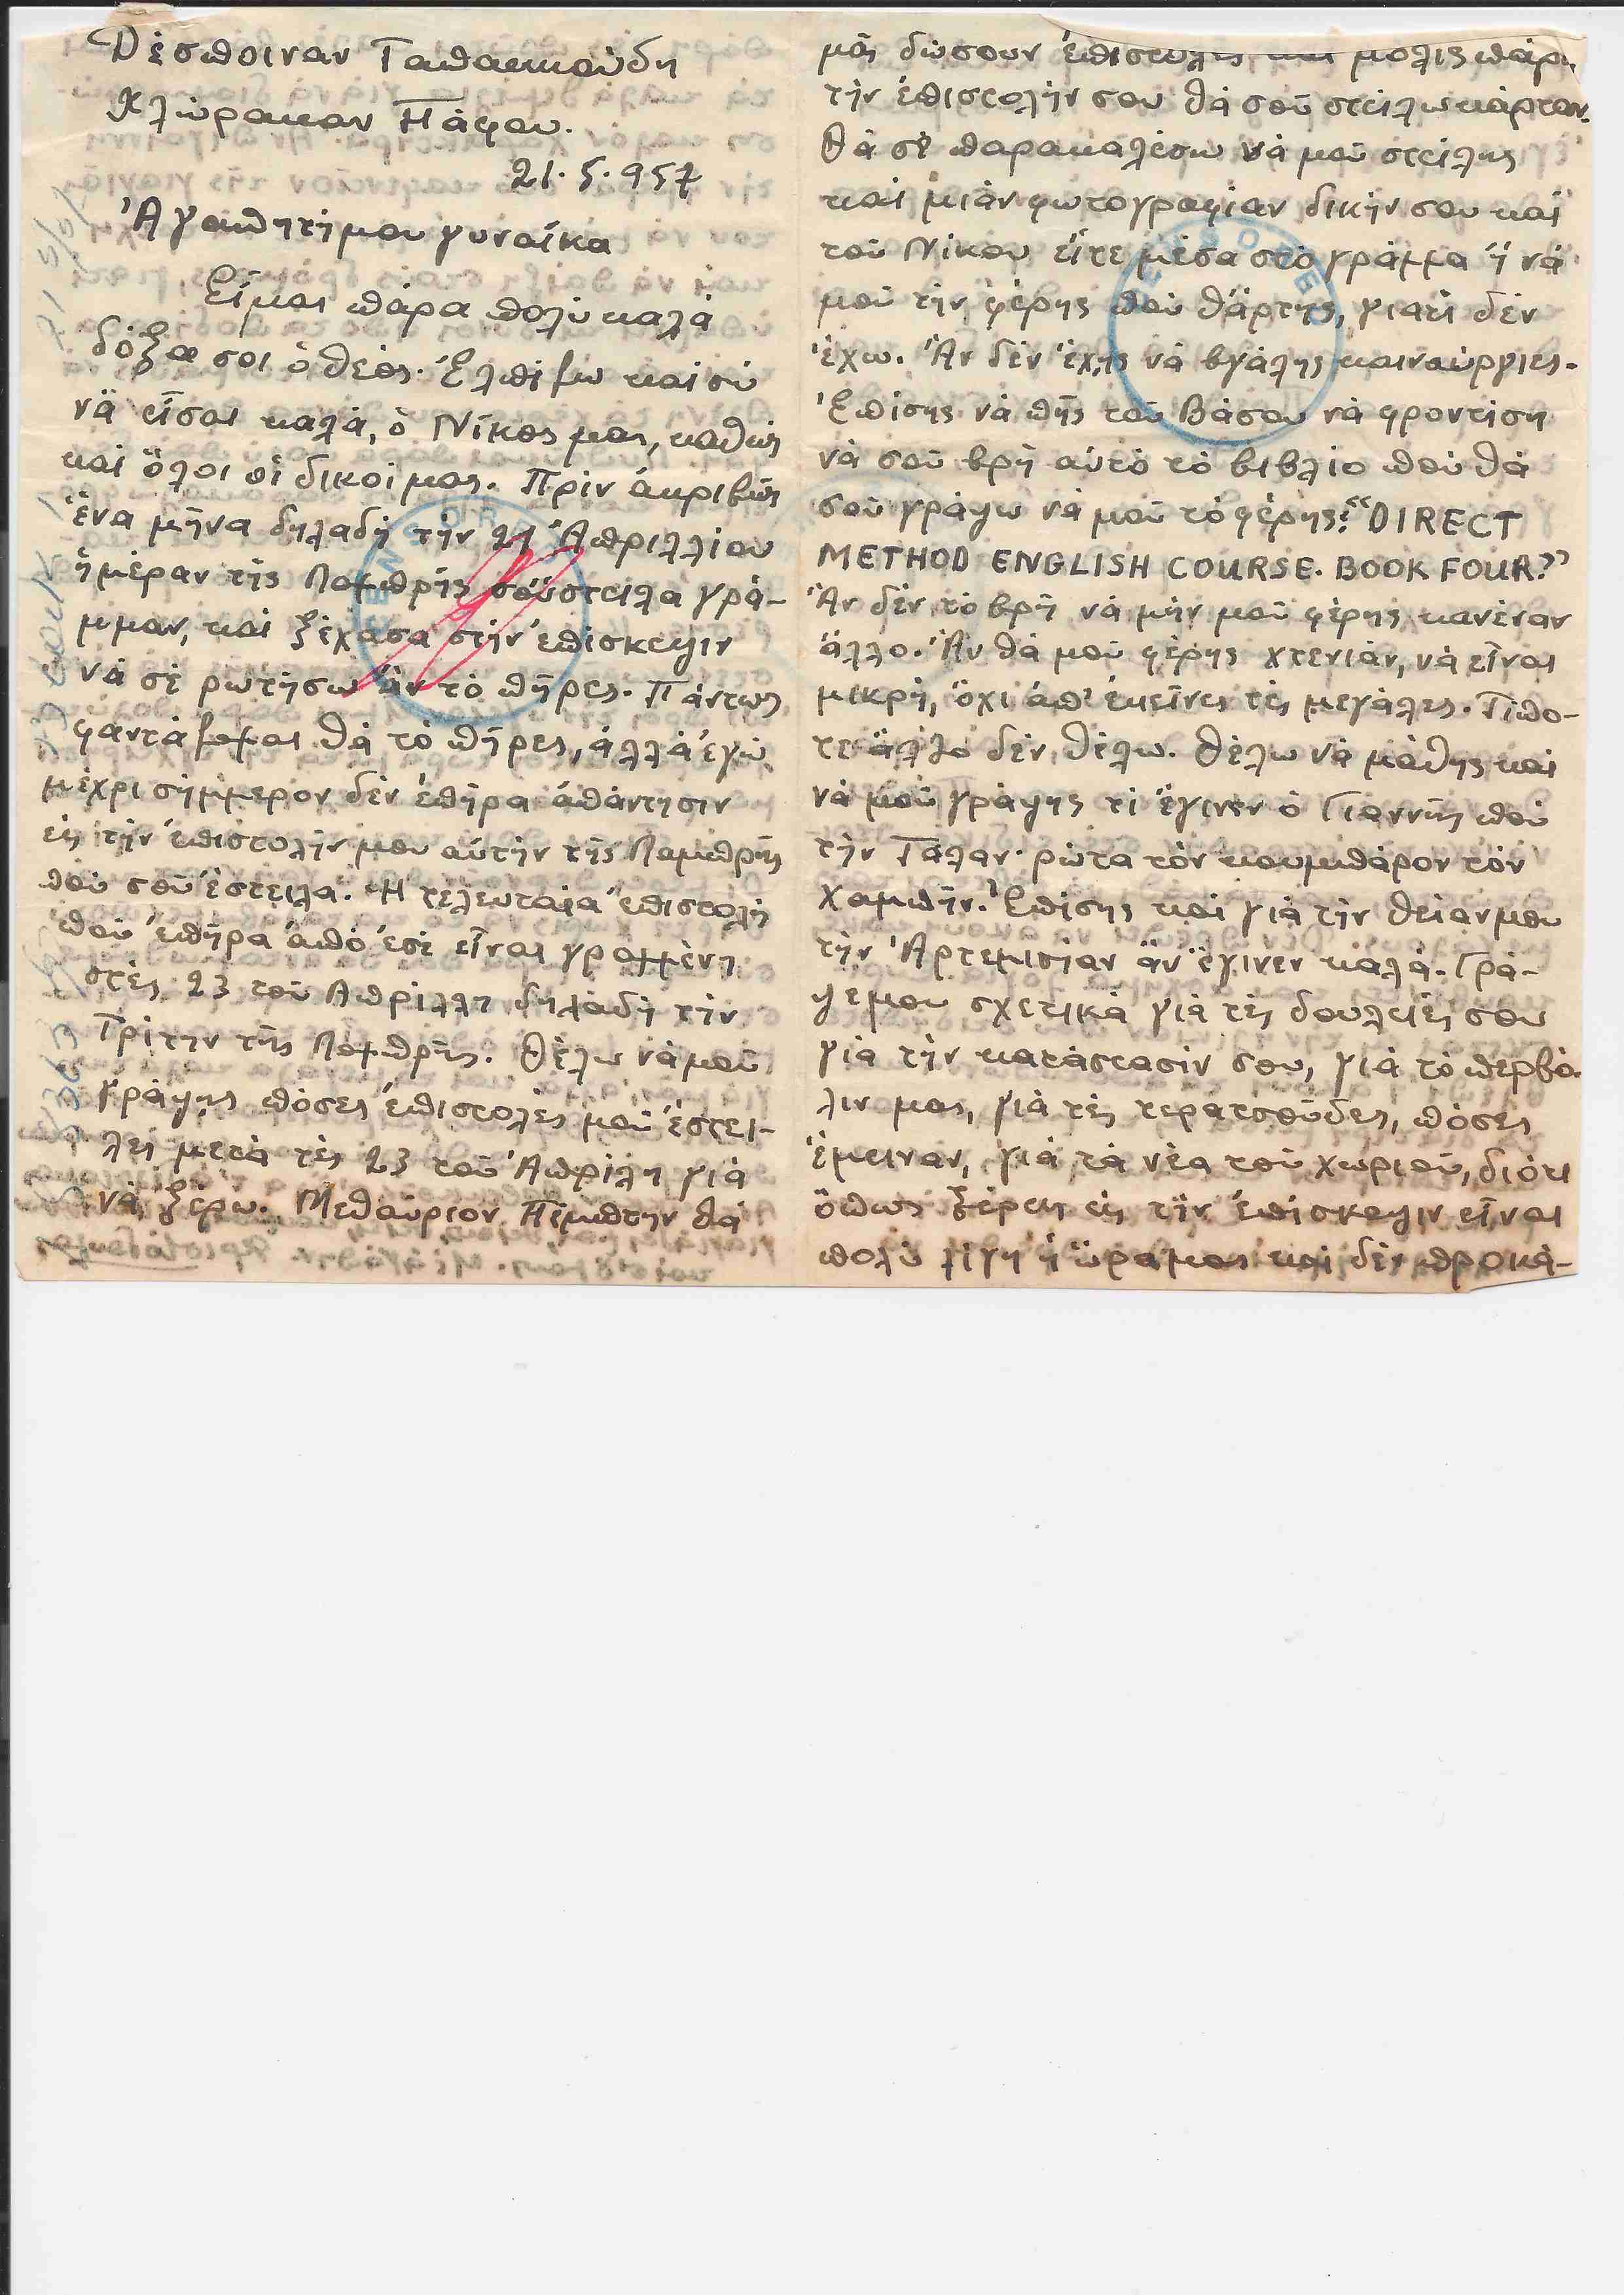 Δέσποιναν Ταπακούδη
Χλώρακαν Πάφου.
21.5.957
Ἀγαπητή μου γυναίκα
Εἶμαι πάρα πολύ καλά
δόξα σοι ὁ Θεός. Ἐλπίζω καί σύ
νἄ εἶσαι καλά, ὁ Νίκος μας, καθώς
καί ὅλοι οἱ δικοί μας. Πρίν ἀκριβῶς
ἕνα μῆνα δηλαδή τήν 21 Ἀπριλλίου
ἡμέραν τῆς Λαμπρῆς σοὔστειλα γρά-
μμαν, καί ξέχασα στήν ἐπίσκεψιν
νά σέ ρωτήσω ἄν τό πῆρες. Πάντως
φαντάζομαι θά τό πῆρες, ἀλλά ἐγώ
μέχρι σήμμερον δέν ἐπῆρα ἀπάντησιν
εἰς τήν ἐπιστολήν μου αὐτήν τῆς Λαμπρῆς
πού σοῦ ἔστειλα. Ἡ τελευταία ἐπιστολή
πού ἐπῆρα ἀπό ἐσέ εἶναι γραμμένη
στές 23 τοῦ Ἀπρίλλη δηλαδή τήν
Τρίτην τῆς Λαμπρῆς. Θέλω νά μοῦ
γράψης πόσες ἐπιστολές μοῦ ἔστει-
λες μετά τές 23 τοῦ Ἀπρίλη γιά
νά ξέρω. Μεθαύριον Πέμπτην θά
μᾶς δώσουν ἐπιστολές καί μόλις πάρω
τήν ἐπιστολήν σου θά σοῦ στείλω κάρταν.
Θά σέ παρακαλέσω νά μοῦ στείλης
καί μιάν φωτογραφίαν δικήν σου καί
τοῦ Νίκου εἴτε μέσα στό γράμμα ἤ νά
μοῦ τήν φέρης πού θἄρτης, γιατί δέν
ἔχω. Ἄν δέν ἔχης νά βγάλης καινούργιες.
Ἐπίσης νά πῆς τοῦ Βάσου νά φροντίση
νά σοῦ βρῆ αὐτό τό βιβλίο πού θά
σοῦ γράψω νά μοῦ τό φέρης: "DIRECT
METHOD ENGLISH COURSE. BOOK FOUR."
Ἄν δέν τό βρῆ νά μήν μοῦ φέρης κανέναν
ἄλλο. Ἄν θά μοῦ φέρης χτενιάν, νά εἶναι
μικρή, ὄχι ἀπ' ἐκεῖνες τές μεγάλες. Τίπο-
τε ἄλλο δέν θέλω. Θέλω νά μάθης καί
νά μοῦ γράψης τί ἔγινεν ὁ Γιαννῆς πού
τήν Τάλαν· ρώτα τόν κουμπάρον τόν
Χαμπῆν. Ἐπίσης καί γιά τήν θείαν μου
τήν Ἀρτεμισίαν ἄν ἔγινεν καλά. Γρά-
ψε μου σχετικά γιά τές δουλειές σου
γιά τήν κατάστασίν σου, γιά τό περβό-
λιν μας, γιά τές τερατσοῦδες, πόσες
ἔμειναν, γιά τά νέα τοῦ χωριοῦ, διότι
ὅπως ξέρεις εἰς τήν ἐπίσκεψιν εἶναι
πολύ λίγη ἡ ὥρα μας καί δέν προκά-